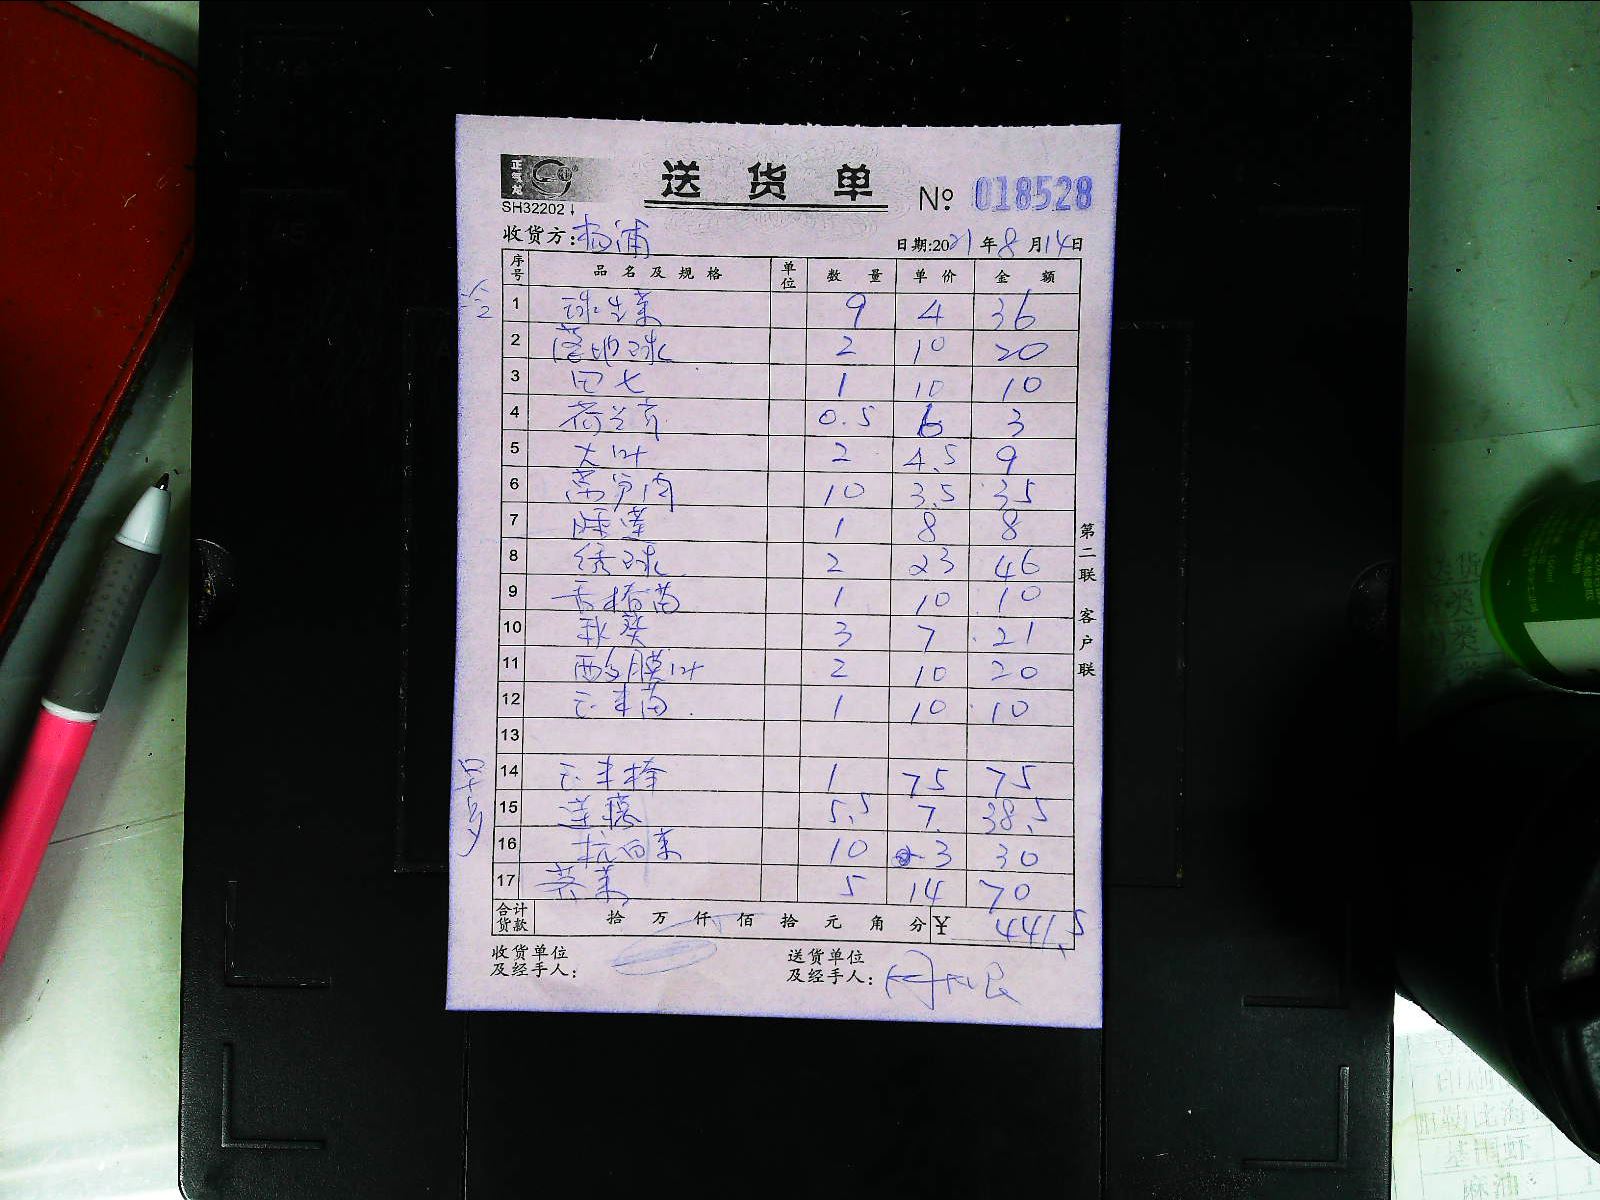 正气龙
SH32202
送货单 № 018528
收货方: 杨浦 日期:2021年8月14日
序号 品名及规格 单位 数量 单价 金额
冷
1 球生菜 9 4 36
2 落地球 2 10 20
3 田七 1 10 10
4 荷兰芹 0.5 6 3
5 大叶 2 4.5 9
6 10 3.5 35
7 睡莲 1 8 8
8 绣球 2 23 46
9 香椿苗 1 10 10
10 秋葵 3 7 21
11 叶 2 10 20
12 玉米苗 1 10 10
13
早
14 1 75 75
15 莲藕 5.5 7 38.5
16 杭白菜 10 3 30
17 荠菜 5 14 70
合计货款 拾 万 仟 佰 拾 元 角 分 ¥ 441.5
收货单位及经手人: 送货单位及经手人:
第二联 客户联